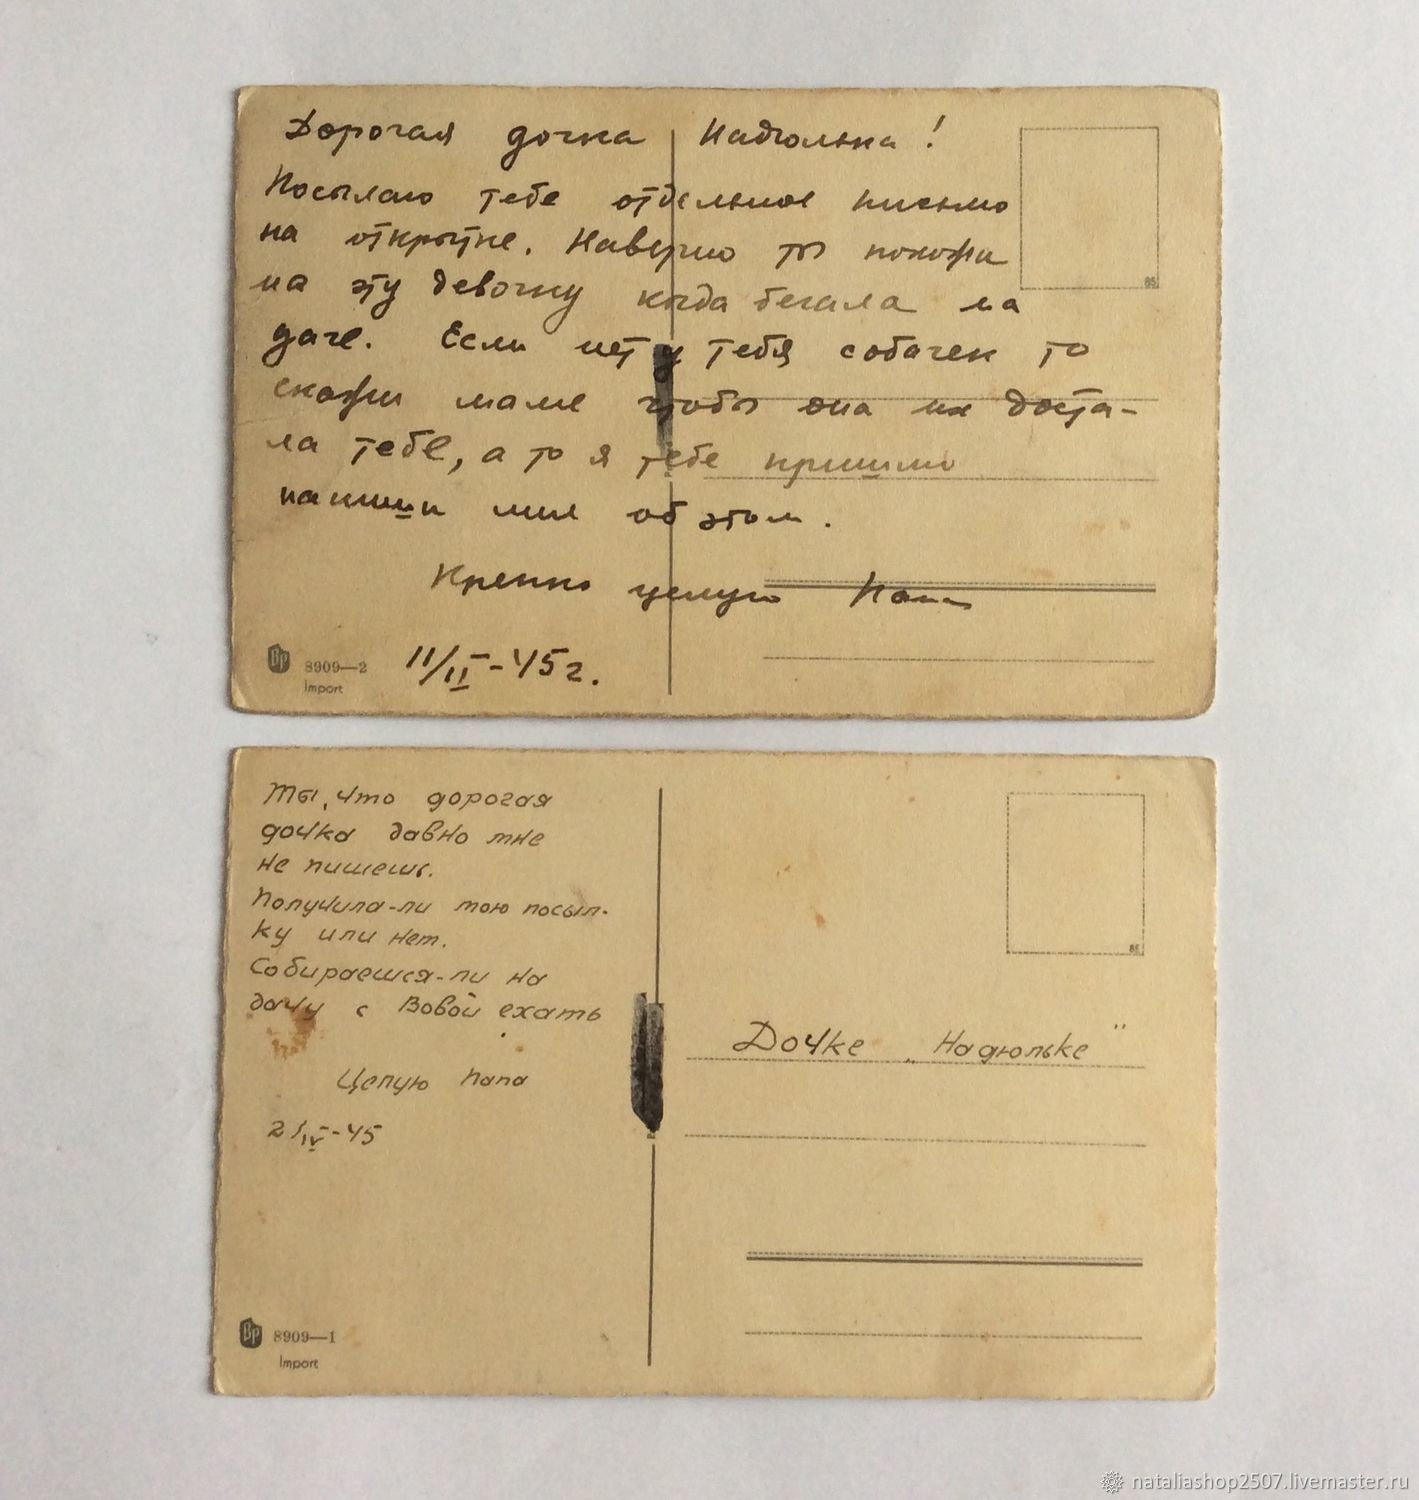 Дорогая дочка Надюлька!
Посылаю тебе отдельное письмо
на открытке. Наверно ты похожи
на эту девочку когда бегала на
даче. Если нет у тебя собачек то
скажи маме чтобы она их доста-
ла тебе, а то я тебе пришлю
напиши мне об этом.
Крепко целую Папа
11/II-45г.
BP 8909—2
Import
85
Ты, что дорогая
дочка давно мне
не пишешь.
Получила-ли мою посыл-
ку или нет.
Собираешся-ли на
дачу с Вовой ехать
Целую папа
2/IV-45
Дочке „Надюльке"
BP 8909—1
Import
85
nataliashop2507.livemaster.ru